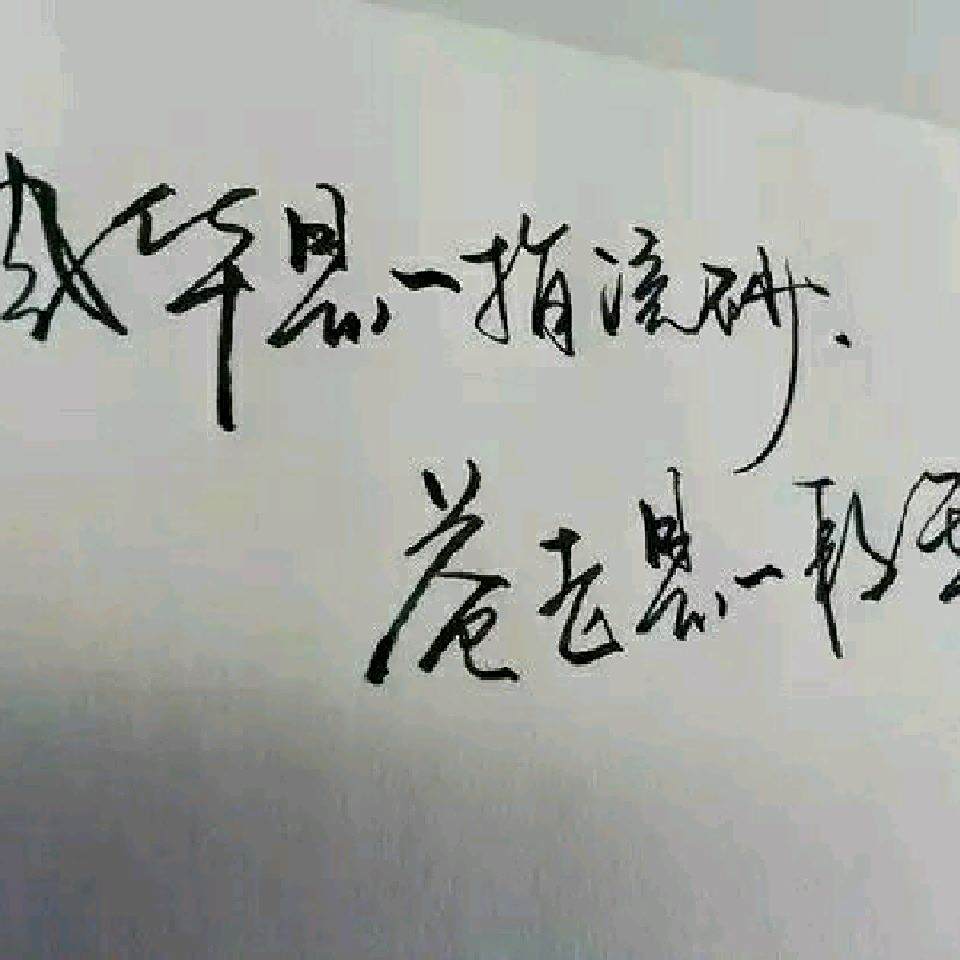 华是一指流砂.
苍老是一段